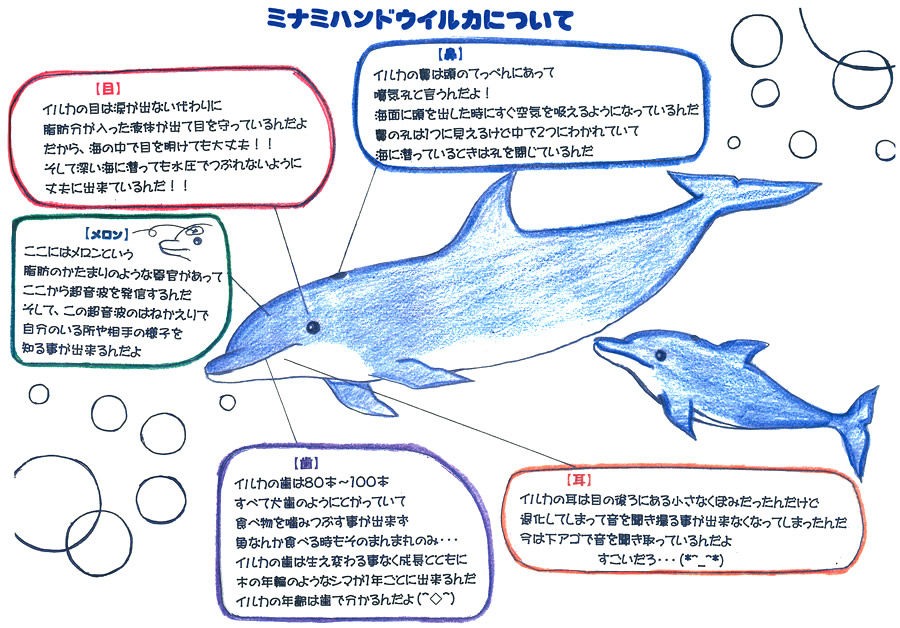 ミナミハンドウイルカについて
【目】
イルカの目は涙が出ない代わりに
脂肪分が入った液体が出て目を守っているんだよ
だから、海の中で目を明けても大丈夫！！
そして深い海に潜っても水圧でつぶれないように
丈夫に出来ているんだ！！
【鼻】
イルカの鼻は頭のてっぺんにあって
噴気孔と言うんだよ！
海面に頭を出した時にすぐ空気を吸えるようになっているんだ
鼻の孔は1つに見えるけど中で2つにわかれていて
海に潜っているときは孔を閉じているんだ
【メロン】
ここにはメロンという
脂肪のかたまりのような器官があって
ここから超音波を発信するんだ
そして、この超音波のはねかえりで
自分のいる所や相手の様子を
知る事が出来るんだよ
【歯】
イルカの歯は80本～100本
すべて犬歯のようにとがっていて
食べ物を噛みつぶす事が出来ず
魚なんか食べる時もそのまんま丸のみ・・・
イルカの歯は生え変わる事なく成長とともに
木の年輪のようなシマが1年ごとに出来るんだ
イルカの年齢は歯で分かるんだよ(^◇^)
【耳】
イルカの耳は目の後ろにある小さなくぼみだったんだけど
退化してしまって音を聞き撮る事が出来なくなってしまったんだ
今は下アゴで音を聞き取っているんだよ
すごいだろ・・・(*^_^*)